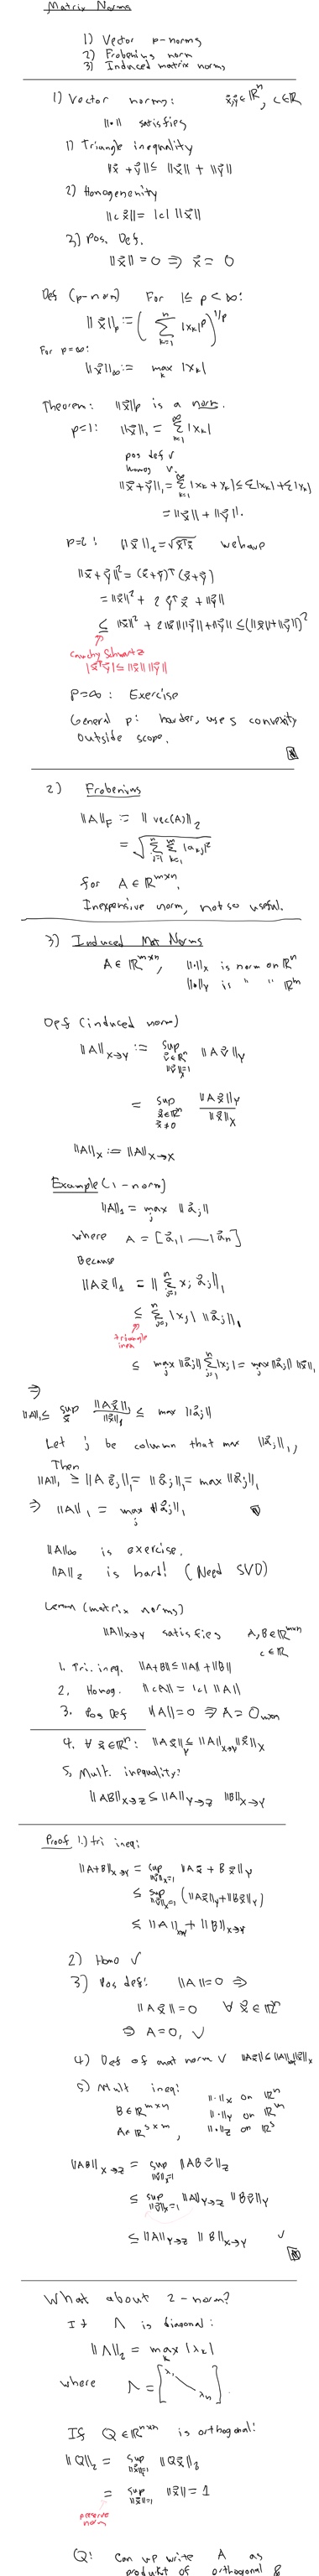 Matrix Norms
1) Vector p-norms
2) Frobenius norm
3) Induced matrix norms
1) Vector norms: x⃗,y⃗ ∈ ℝⁿ, c ∈ ℝ
‖•‖ satisfies
1) Triangle inequality
‖x⃗ + y⃗‖ ≤ ‖x⃗‖ + ‖y⃗‖
2) Homogeneity
‖c x⃗‖ = |c| ‖x⃗‖
3) Pos. Def.
‖x⃗‖ = 0 ⇒ x⃗ = 0
Def (p-norm) For 1 ≤ p < ∞:
‖x⃗‖_p := (∑_{k=1}^n |x_k|^p)^{1/p}
For p=∞:
‖x⃗‖_∞ := max_k |x_k|
Theorem: ‖x⃗‖_p is a norm.
p=1: ‖x⃗‖_1 = ∑ |x_k|
pos def ✓
homog ✓
‖x⃗+y⃗‖_1 = ∑ |x_k + y_k| ≤ ∑|x_k| + ∑|y_k|
= ‖x⃗‖ + ‖y⃗‖.
p=2: ‖x⃗‖_2 = √(x⃗ᵀx⃗) we have
‖x⃗+y⃗‖² = (x⃗+y⃗)ᵀ(x⃗+y⃗)
= ‖x⃗‖² + 2 y⃗ᵀx⃗ + ‖y⃗‖
≤ ‖x⃗‖² + 2‖x⃗‖‖y⃗‖ + ‖y⃗‖ ≤ (‖x⃗‖+‖y⃗‖)²
Cauchy Schwartz
|x⃗ᵀy⃗| ≤ ‖x⃗‖ ‖y⃗‖
p=∞: Exercise
General p: harder, uses convexity
outside scope.
2) Frobenius
‖A‖_F := ‖vec(A)‖_2
= √(∑ ∑ |a_{kj}|²)
for A ∈ ℝ^{m×n}.
Inexpensive norm, not so useful.
3) Induced Mat Norms
A ∈ ℝ^{m×n}, ‖•‖_X is norm on ℝⁿ
‖•‖_Y is " " ℝᵐ
Def (induced norm)
‖A‖_{X→Y} := sup_{v⃗∈ℝⁿ, ‖v⃗‖_X=1} ‖Av⃗‖_Y
= sup_{x⃗∈ℝⁿ, x⃗≠0} ‖Ax⃗‖_Y / ‖x⃗‖_X
‖A‖_X := ‖A‖_{X→X}
Example (1-norm)
‖A‖_1 = max_j ‖a⃗_j‖
where A = [a⃗_1| — |a⃗_n]
Because
‖Ax⃗‖_1 = ‖∑_{j=1}^n x_j a⃗_j‖_1
≤ ∑_{j=1}^n |x_j| ‖a⃗_j‖_1
triangle ineq
≤ max_j ‖a⃗_j‖ ∑_{j=1}^n |x_j| = max_j ‖a⃗_j‖ ‖x⃗‖_1
⇒
‖A‖_1 ≤ sup_x⃗ ‖Ax⃗‖_1 / ‖x⃗‖_1 ≤ max ‖a⃗_j‖
Let j be column that max ‖a⃗_j‖_1,
Then
‖A‖_1 ≥ ‖A e⃗_j‖_1 = ‖a⃗_j‖_1 = max ‖a⃗_j‖_1
⇒ ‖A‖_1 = max_j ‖a⃗_j‖_1
‖A‖_∞ is exercise.
‖A‖_2 is hard! (Need SVD)
Lemma (matrix norms)
‖A‖_{X→Y} satisfies A,B ∈ ℝ^{m×n}
c ∈ ℝ
1. Tri. ineq. ‖A+B‖ ≤ ‖A‖ + ‖B‖
2. Homog. ‖cA‖ = |c| ‖A‖
3. Pos Def ‖A‖ = 0 ⇒ A = 0_{m×n}
4. ∀ x⃗ ∈ ℝⁿ: ‖Ax⃗‖_Y ≤ ‖A‖_{X→Y} ‖x⃗‖_X
5. Mult. inequality:
‖AB‖_{X→Z} ≤ ‖A‖_{Y→Z} ‖B‖_{X→Y}
Proof 1.) tri ineq:
‖A+B‖_{X→Y} = sup_{‖x⃗‖_X=1} ‖Ax⃗ + Bx⃗‖_Y
≤ sup_{‖x⃗‖_X=1} (‖Ax⃗‖_Y + ‖Bx⃗‖_Y)
≤ ‖A‖_{X→Y} + ‖B‖_{X→Y}
2) Homo ✓
3) Pos def: ‖A‖ = 0 ⇒
‖Ax⃗‖ = 0 ∀ x⃗ ∈ ℝⁿ
⇒ A = 0, ✓
4) Def of mat norm ✓ ‖Ax⃗‖ ≤ ‖A‖ ‖x⃗‖_X
5) Mult ineq:
B ∈ ℝ^{m×n} ‖•‖_X on ℝⁿ
‖•‖_Y on ℝᵐ
A ∈ ℝ^{s×m}, ‖•‖_Z on ℝˢ
‖AB‖_{X→Z} = sup_{‖v⃗‖=1} ‖ABv⃗‖_Z
≤ sup_{‖v⃗‖_X=1} ‖A‖_{Y→Z} ‖Bv⃗‖_Y
≤ ‖A‖_{Y→Z} ‖B‖_{X→Y} ✓
What about 2-norm?
If Λ is diagonal:
‖Λ‖_2 = max_k |λ_k|
where Λ = [λ_1 \ λ_n].
If Q ∈ ℝ^{n×n} is orthogonal:
‖Q‖_2 = sup_{‖x⃗‖=1} ‖Qx⃗‖_2
= sup_{‖x⃗‖=1} ‖x⃗‖ = 1
preserve norm
Q: Can we write A as
product of orthogonal &